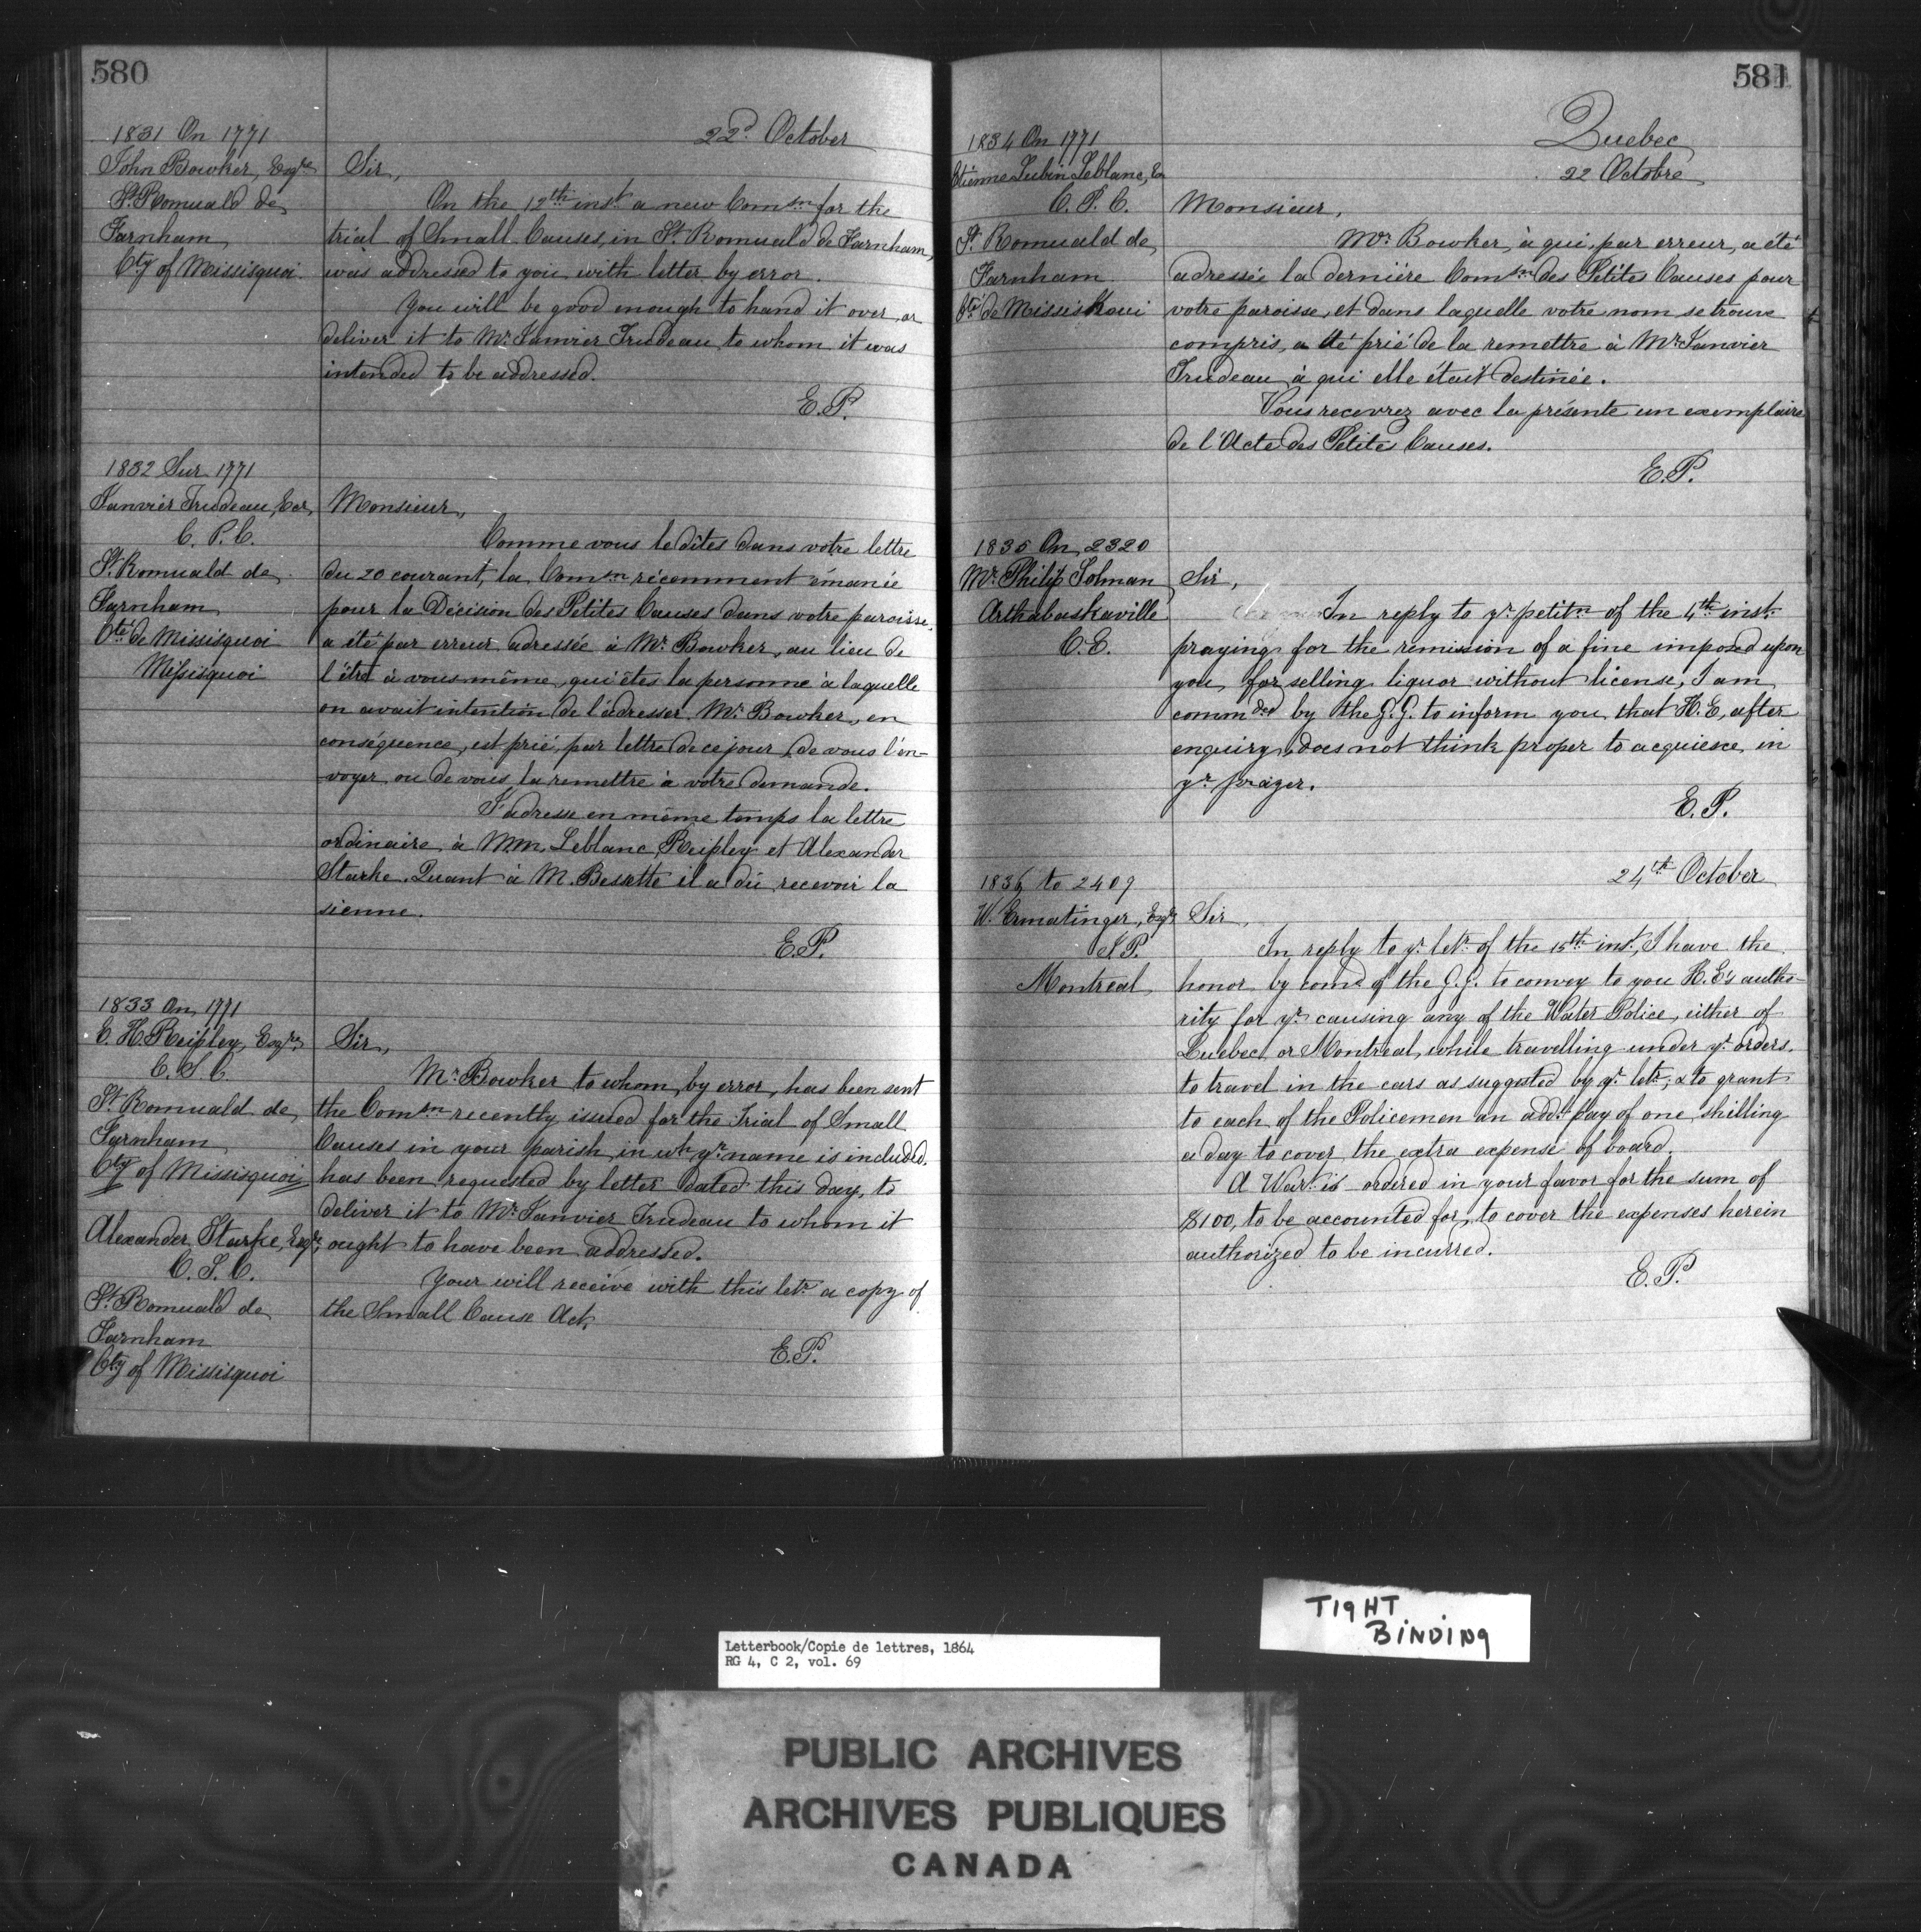 580
22d. October
1831 On 1771
John Bowker, Esqre
St. Romuald de
Farnham
Cty of Missisquoi
Sir,
On the 12th inst. a new Comsn for the
trial of Small Causes, in St. Romuald de Farnham,
was addressed to you with letter by error.
You will be good enough to hand it over or
deliver it to Mr. Janvier Trudeau to whom it was
intended to be addressed.
E.P.
1832 Sur 1771
Janvier Trudeau, Ecr,
C. P. C.
St. Romuald de
Farnham
Cté de Missisquoi
Missisquoi
Monsieur,
Comme vous le dites dans votre lettre
du 20 courant, la Comsn récemment émanée
pour la Décision des Petites Causes dans votre paroisse,
a été par erreur adressée à Mr. Bowker, au lieu de
l'être à vous même, qui êtes la personne à laquelle
on avait intention de l'adresser. Mr. Bowker, en
conséquence, est prié, par lettre de ce jour, de vous l'en-
voyer ou de vous la remettre à votre demande.
J'adresse en même temps la lettre
ordinaire à MM. Leblanc, Reipley et Alexander
Starke. Quant à M. Bessette il a dû recevoir la
sienne.
E.P.
1833 On 1771
C. H. Reipley, Esqre,
C. S. C.
St. Romuald de
Farnham
Cty of Missisquoi
Alexander Starke, Esqr,
C. S. C.
St. Romuald de
Farnham
Cty of Missisquoi
Sir,
Mr. Bowker to whom, by error, has been sent
the Comsn recently issued for the Trial of Small
Causes in your parish, in wh. yr. name is included,
has been requested by letter dated this day, to
deliver it to Mr. Janvier Trudeau to whom it
ought to have been addressed.
Your will receive with this letr. a copy of
the Small Cause Act.
E.P.
581
Quebec
22 Octobre
1834 On 1771
Etienne Lubin Leblanc, Ec
C. P. C.
St. Romuald de
Farnham
Cté de Missiskoui
Monsieur,
Mr. Bowker, à qui, par erreur, a été
adressée la dernière Comsn des Petites Causes pour
votre paroisse, et dans laquelle votre nom se trouve
compris, a été prié de la remettre à Mr. Janvier
Trudeau à qui elle était destinée.
Vous recevrez avec la présente un exemplaire
de l'Acte des Petites Causes.
E.P.
1835 On 2320
Mr. Philip Solman
Arthabaskaville
C.E.
Sir,
In reply to yr. petitn. of the 4th inst.
praying for the remission of a fine imposed upon
you, for selling liquor without license, I am
commded by the G.G. to inform you that H.E. after
enquiry, does not think proper to acquiesce in
yr. prayer.
E.P.
24th October
1836 to 2409
W. Ermatinger, Esqr
J.P.
Montreal
Sir,
In reply to yr. letr. of the 15th inst., I have the
honor by comd. of the G.G. to convey to you H.E's autho-
rity for yr. causing any of the Water Police, either of
Quebec or Montreal, while travelling under yr. orders,
to travel in the cars as suggested by yr. letr., & to grant
to each of the Policemen an addl. pay of one shilling
a day to cover the extra expense of board.
A Wart. is ordered in your favor for the sum of
$100, to be accounted for, to cover the expenses herein
authorized to be incurred.
E.P.
TIGHT
BINDING
Letterbook/Copie de lettres, 1864
RG 4, C 2, vol. 69
PUBLIC ARCHIVES
ARCHIVES PUBLIQUES
CANADA